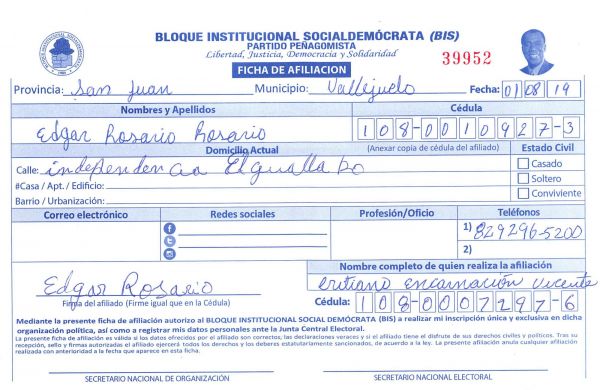 BLOQUE INSTITUCIONAL SOCIALDEMÓCRATA (BIS)
PARTIDO PEÑAGOMISTA
Libertad, Justicia, Democracia y Solidaridad
39952
FICHA DE AFILIACION
Provincia: San Juan Municipio: Vallejuelo Fecha: 01/08/19
Nombres y Apellidos Cédula
Edgar Rosario Rosario 108-0010927-3
Domicilio Actual (Anexar copia de cédula del afiliado) Estado Civil
Calle: independencia El guallabo
Casado
#Casa / Apt. / Edificio: Soltero
Barrio / Urbanización: Conviviente
Correo electrónico Redes sociales Profesión/Oficio Teléfonos
1) 829296-5200
2)
Nombre completo de quien realiza la afiliación
Edgar Rosario critiano encarnación vicente
Firma del afiliado (Firme igual que en la Cédula) Cédula: 108-0007297-6
Mediante la presente ficha de afiliación autorizo al BLOQUE INSTITUCIONAL SOCIAL DEMÓCRATA (BIS) a realizar mi inscripción única y exclusiva en dicha
organización política, así como a registrar mis datos personales ante la Junta Central Electoral.
La presente ficha de afiliación es válida si los datos ofrecidos por el afiliado son correctos; las declaraciones veraces y si el afiliado tiene el disfrute de sus derechos civiles y políticos. Tras su
recepción, sello y firmas autorizadas el afiliado ejercerá todos los derechos y los deberes estatutariamente sancionados, de acuerdo a la ley. La presente afiliación anula cualquier afiliación
realizada con anterioridad a la fecha que aparece en esta ficha.
SECRETARIO NACIONAL DE ORGANIZACIÓN SECRETARIO NACIONAL ELECTORAL